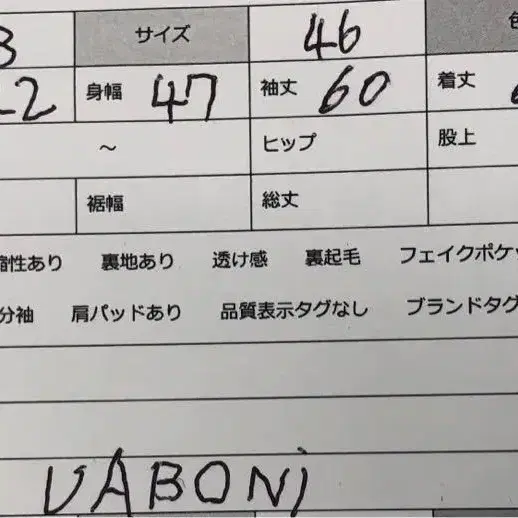 3 サイズ 46 色
22 身幅 47 袖丈 60 着丈
～ ヒップ 股上
裾幅 総丈
縮性あり 裏地あり 透け感 裏起毛 フェイクポケッ
分袖 肩パッドあり 品質表示タグなし ブランドタグ
VABONi